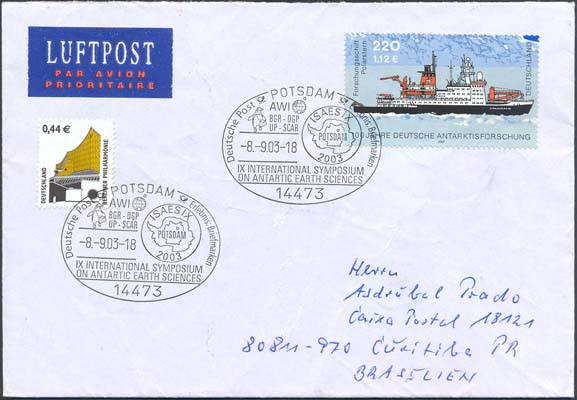 LUFTPOST
PAR AVION
PRIORITAIRE
Forschungsschiff
Polarstern
220
1,12 €
DEUTSCHLAND
100 JAHRE DEUTSCHE ANTARKTISFORSCHUNG
0,44 €
DEUTSCHLAND
BERLINER PHILHARMONIE
Deutsche Post
POTSDAM
Erlebnis Briefmarken
AWI
BGR - DGP
UP - SCAR
ISAES IX
POTSDAM
2003
-8.-9.03-18
IX INTERNATIONAL SYMPOSIUM
ON ANTARTIC EARTH SCIENCES
14473
Deutsche Post
POTSDAM
Erlebnis Briefmarken
AWI
BGR - DGP
UP - SCAR
ISAES IX
POTSDAM
2003
-8.-9.03-18
IX INTERNATIONAL SYMPOSIUM
ON ANTARTIC EARTH SCIENCES
14473
Herrn
Asdrúbal Prado
Caixa Postal 18121
80811-970 Curitiba PR
BRASILIEN